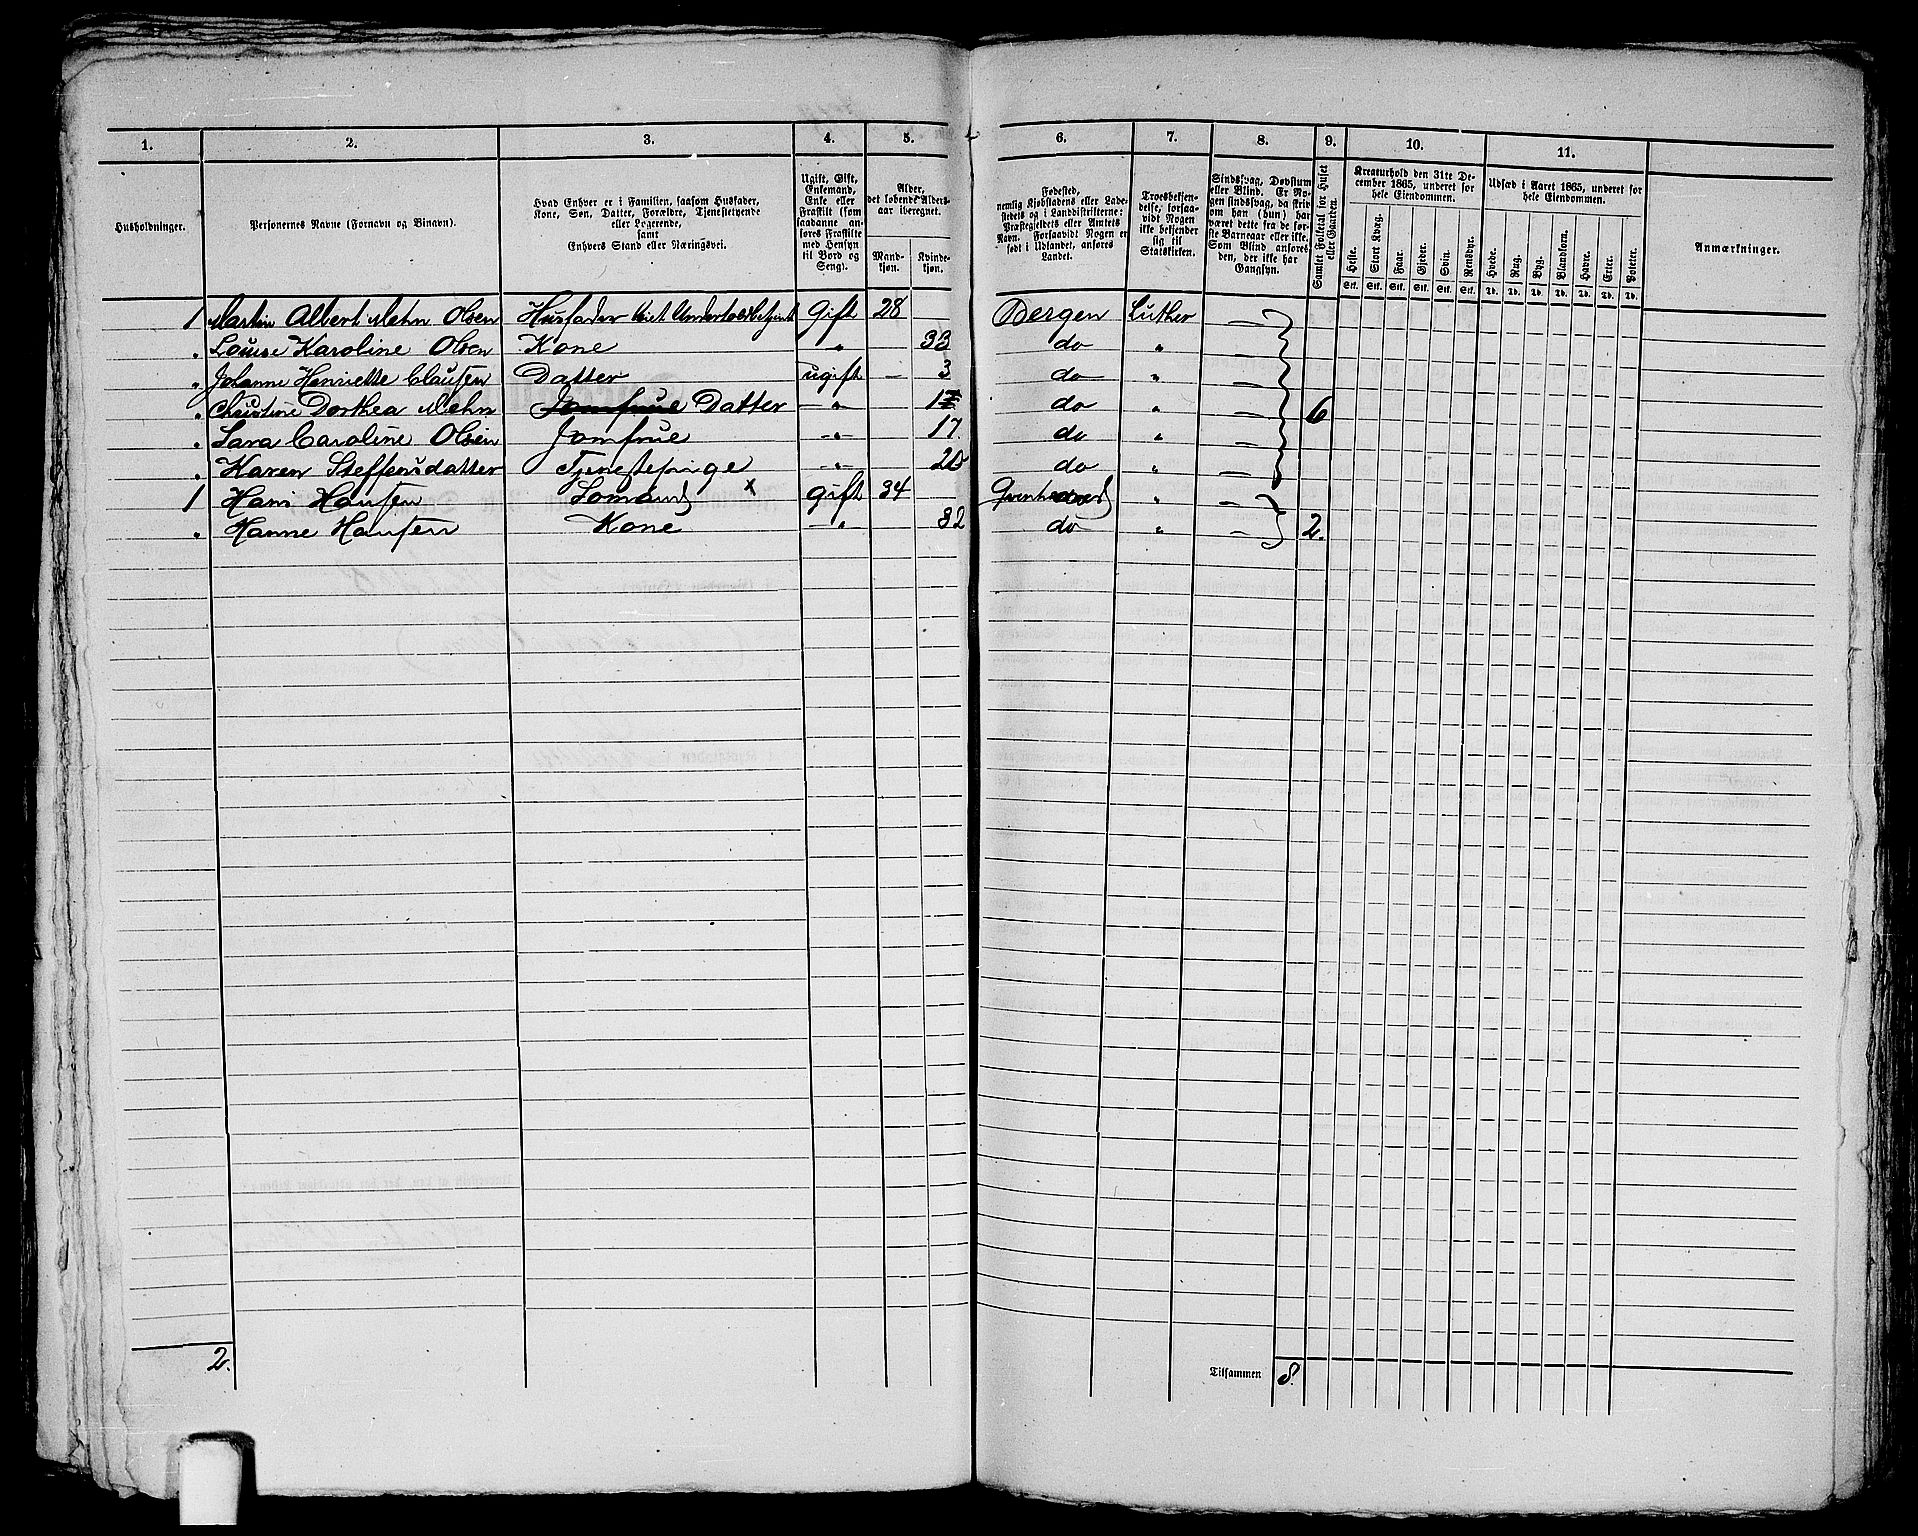 1. 2. 3. 4. 5. 6. 7. 8. 9. 10. 11.
Husholdninger.
Personernes Navne (Fornavn og Binavn).
Hvad Enhver er i Familien, saasom Husfader,
Kone, Søn, Datter, Forældre, Tjenestetyende
eller Logerende,
samt
Enhvers Stand eller Næringsvei.
Ugift, Gift,
Enkemand,
Enke eller
Fraskilt (som
saadanne an-
føres Fraskilte
med Hensyn
til Bord og
Seng).
Alder,
det løbende Alders-
aar iberegnet.
Mand-
kjøn.
Kvinde-
kjøn.
Fødested,
nemlig Kjøbstadens eller Lade-
stedets og i Landdistrikterne:
Præstegjeldets eller Amtets
Navn. Forsaavidt Nogen er
født i Udlandet, anføres
Landet.
Troesbekjen-
delse, forsaa-
vidt Nogen
ikke bekjender
sig til
Statskirken.
Sindssvag, Døvstum
eller Blind. Er No-
gen sindssvag, da skriv
om han (hun) har
været dette fra de før-
ste Barneaar eller ikke.
Som Blind anføres
den, der ikke har
Gangsyn.
Samlet Folketal for Huset
eller Gaarden.
Kreaturhold den 31te De-
cember 1865, underet for
hele Eiendommen.
Heste. Stort Kvæg. Faar. Gjeder. Svin. Rensdyr.
Stk. Stk. Stk. Stk. Stk. Stk.
Udsæd i Aaret 1865, underet for
hele Eiendommen.
Hvede. Rug. Byg. Blandkorn. Havre. Erter. Poteter.
Td. Td. Td. Td. Td. Td. Td.
Anmærkninger.
1 Martin Albert Mehn Olsen Husfader Gift 28 Bergen Luther —
" Louise Karoline Olsen Kone " 33 do " —
" Johanne Henriette Clausen Datter ugift — 3 do " —
" Christine Dorthea Mehn Jomfrue Datter —"— 1 do " — 6
" Lara Caroline Olsen Jomfrue —"— 17 do " —
" Karen Steffensdatter Tjenestepige —"— do " —
1 Hans Hansen x Gift 34 " —
" Hanne Hansen Kone —"— 32 do " — 2.
2.
Tilsammen 8.